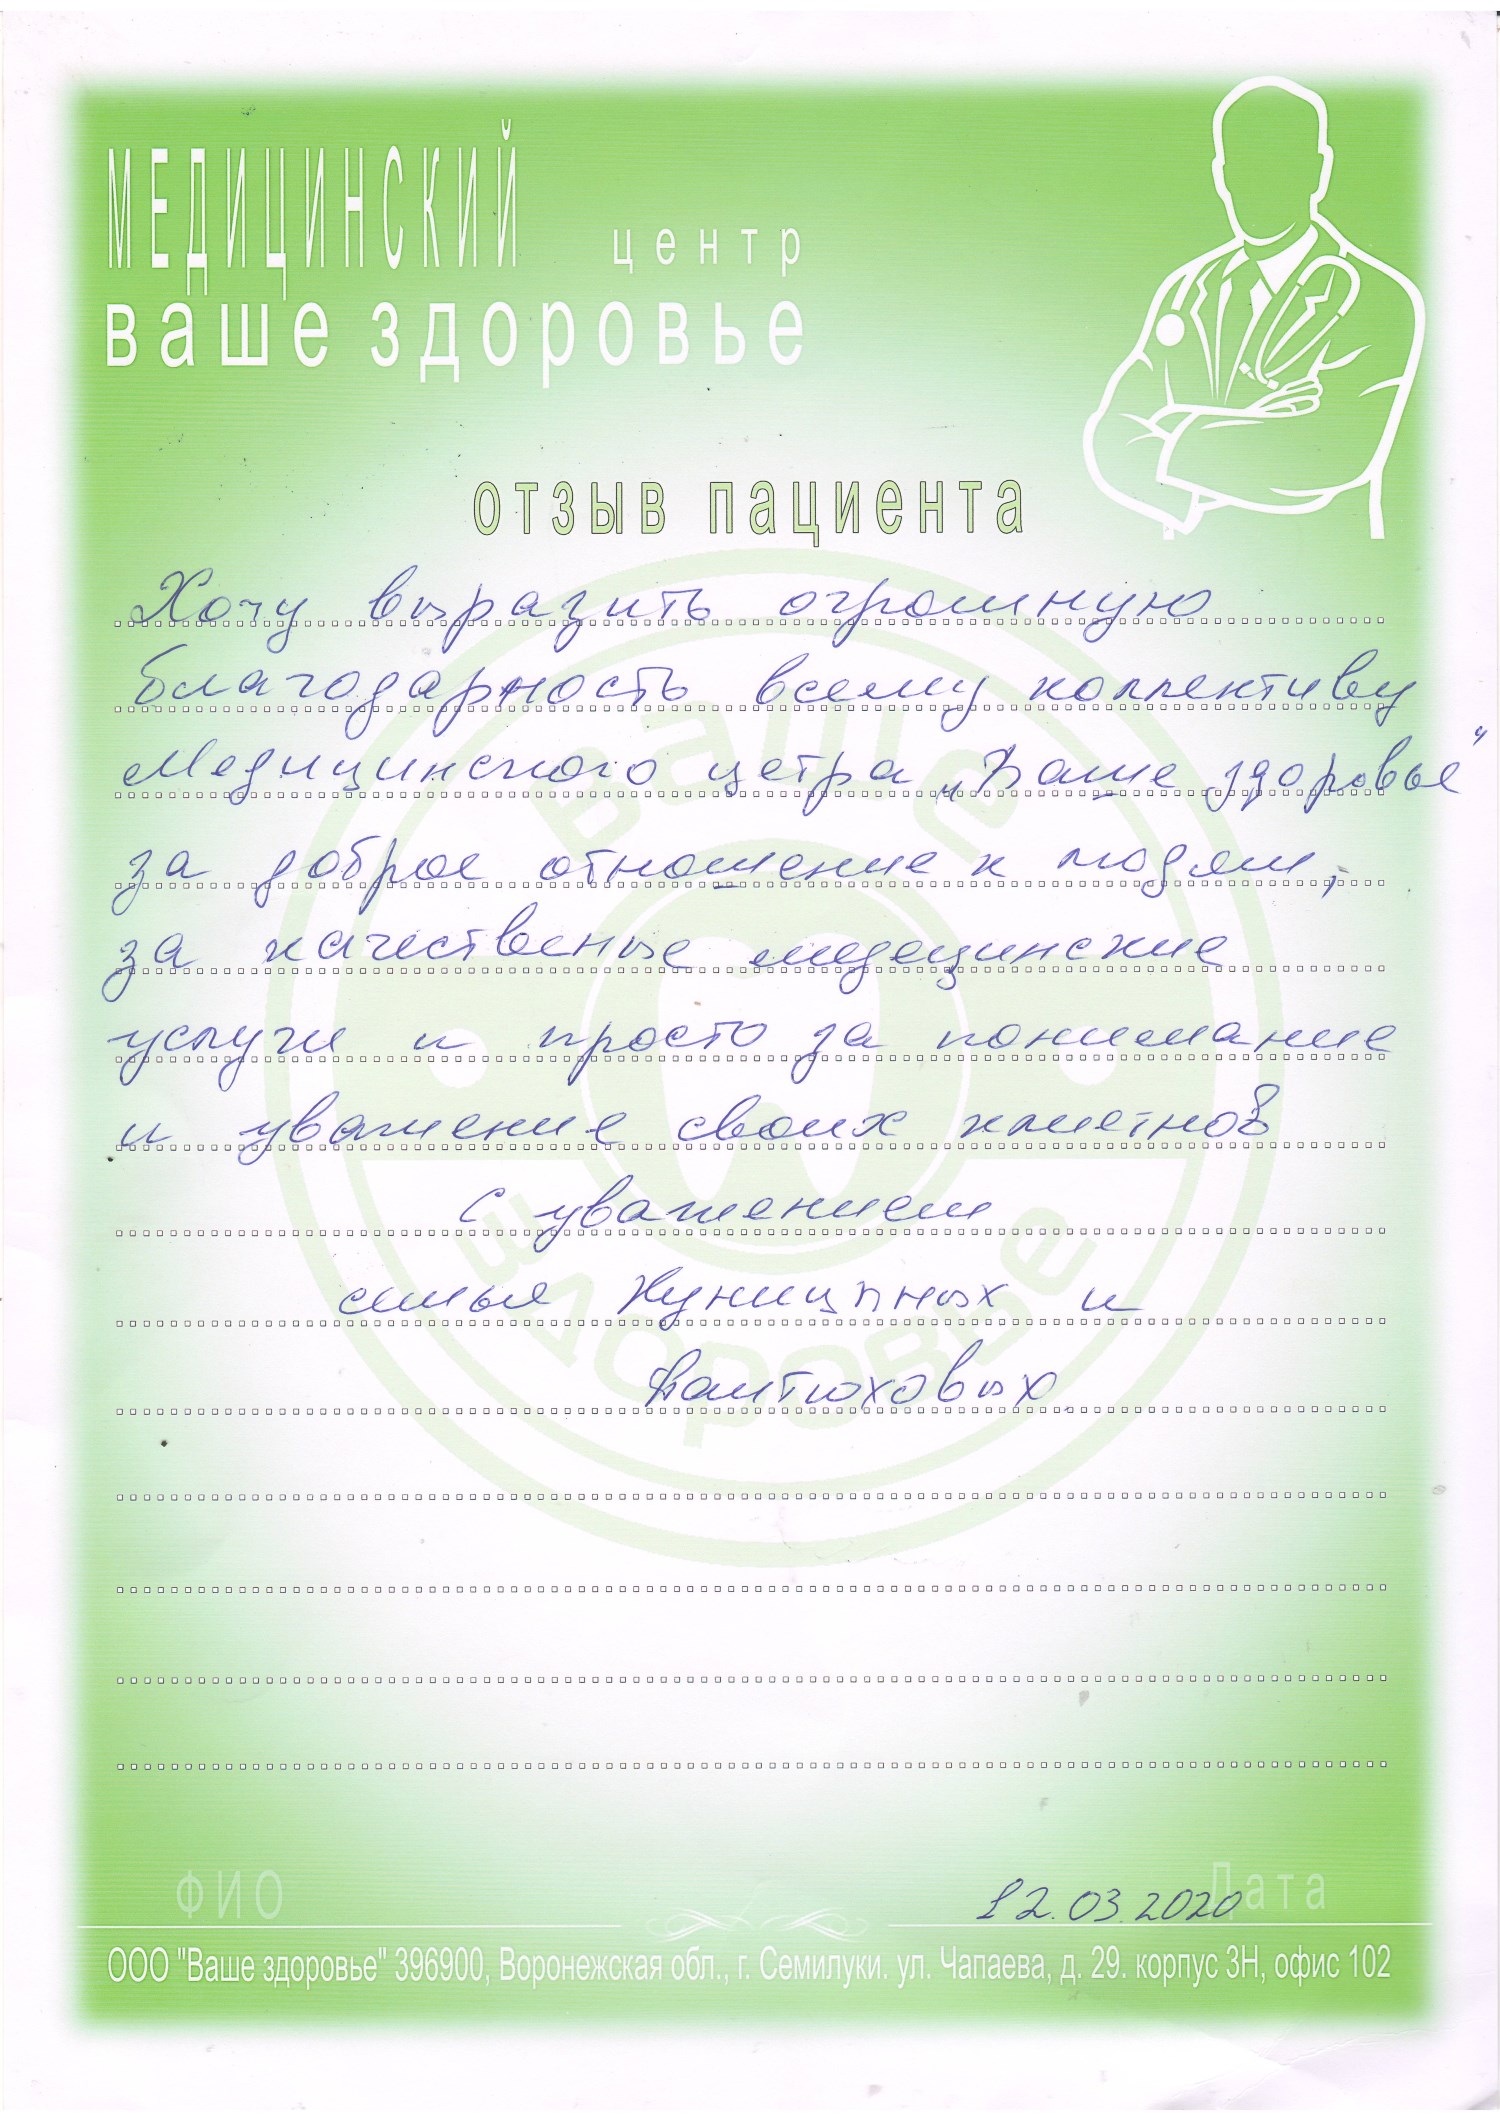 МЕДИЦИНСКИЙ центр
ваше здоровье
отзыв пациента
Хочу выразить огромную
благодарность всему коллективу
Медицинского цетра „Ваше здоровье"
за доброе отношение к людям,
за качественые медецинские
услуги и просто за понимание
и уважение своих клиетнов
С уважением
семья и
ФИО
12.03.2020 Дата
ООО "Ваше здоровье" 396900, Воронежская обл., г. Семилуки. ул. Чапаева, д. 29. корпус 3Н, офис 102
ваше
здоровье